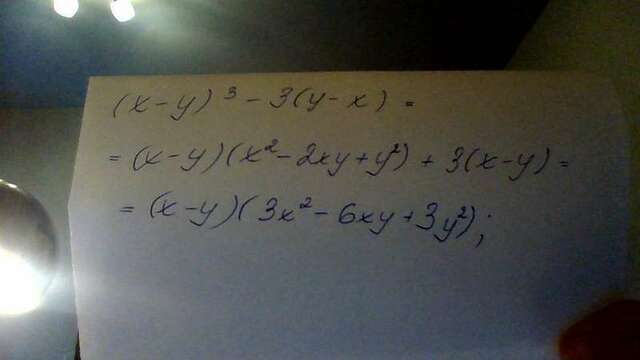 (x-y)³ - 3(y-x) =
= (x-y)(x²-2xy+y²) + 3(x-y) =
= (x-y)(3x²-6xy+3y²);